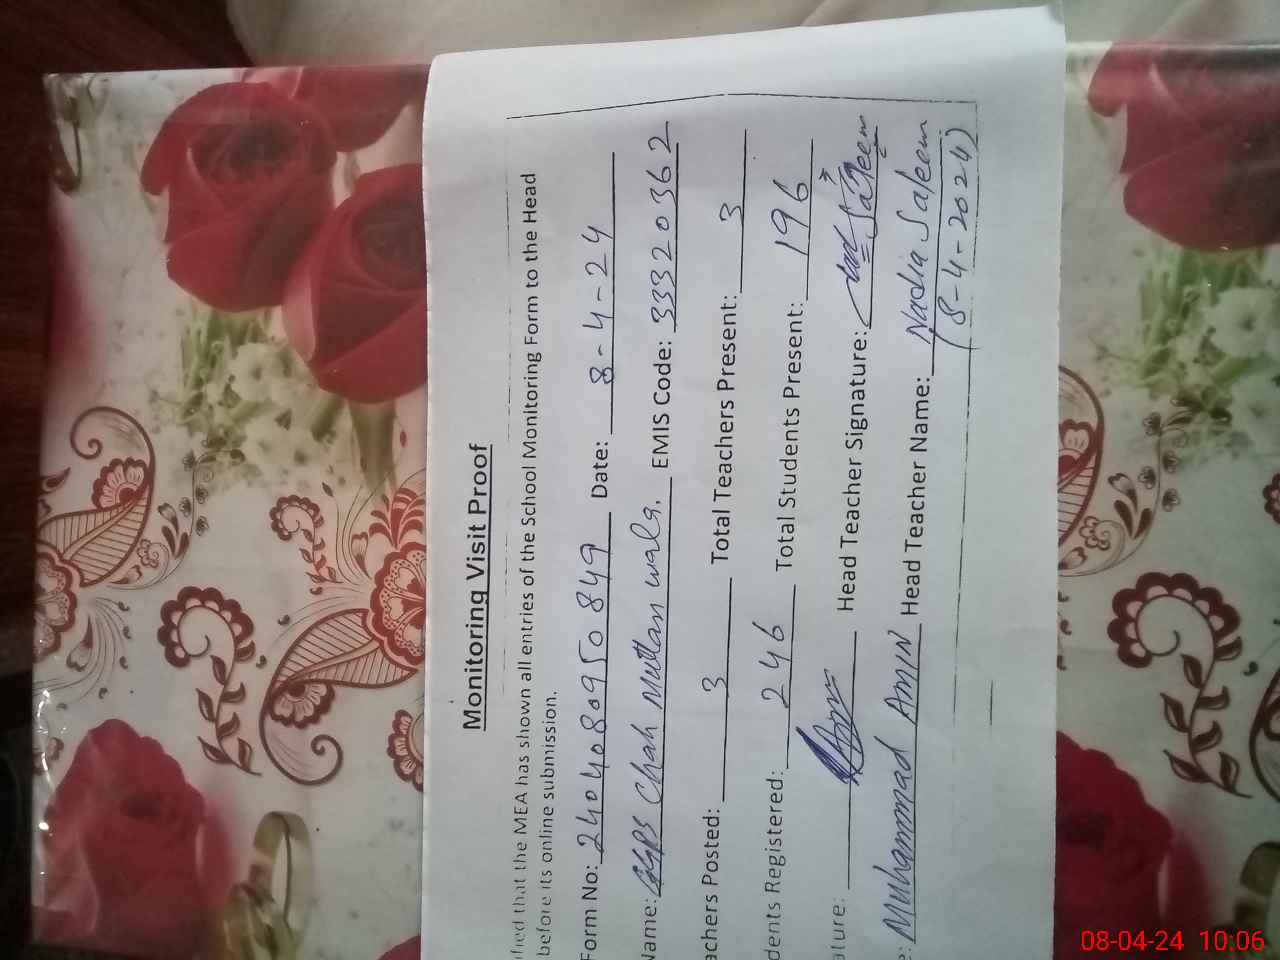 Monitoring Visit Proof
that the MEA has shown all entries of the School Monitoring Form to the Head
before its online submission.
Form No: 2404080950849 Date: 8-4-24
Name: GGPS Chah Multan wala. EMIS Code: 33320362
achers Posted: 3 Total Teachers Present: 3
dents Registered: 246 Total Students Present: 196
ature: Head Teacher Signature: Saleem
e: Muhammad Amin Head Teacher Name: Nadia Saleem
(8-4-2024)
08-04-24 10:06